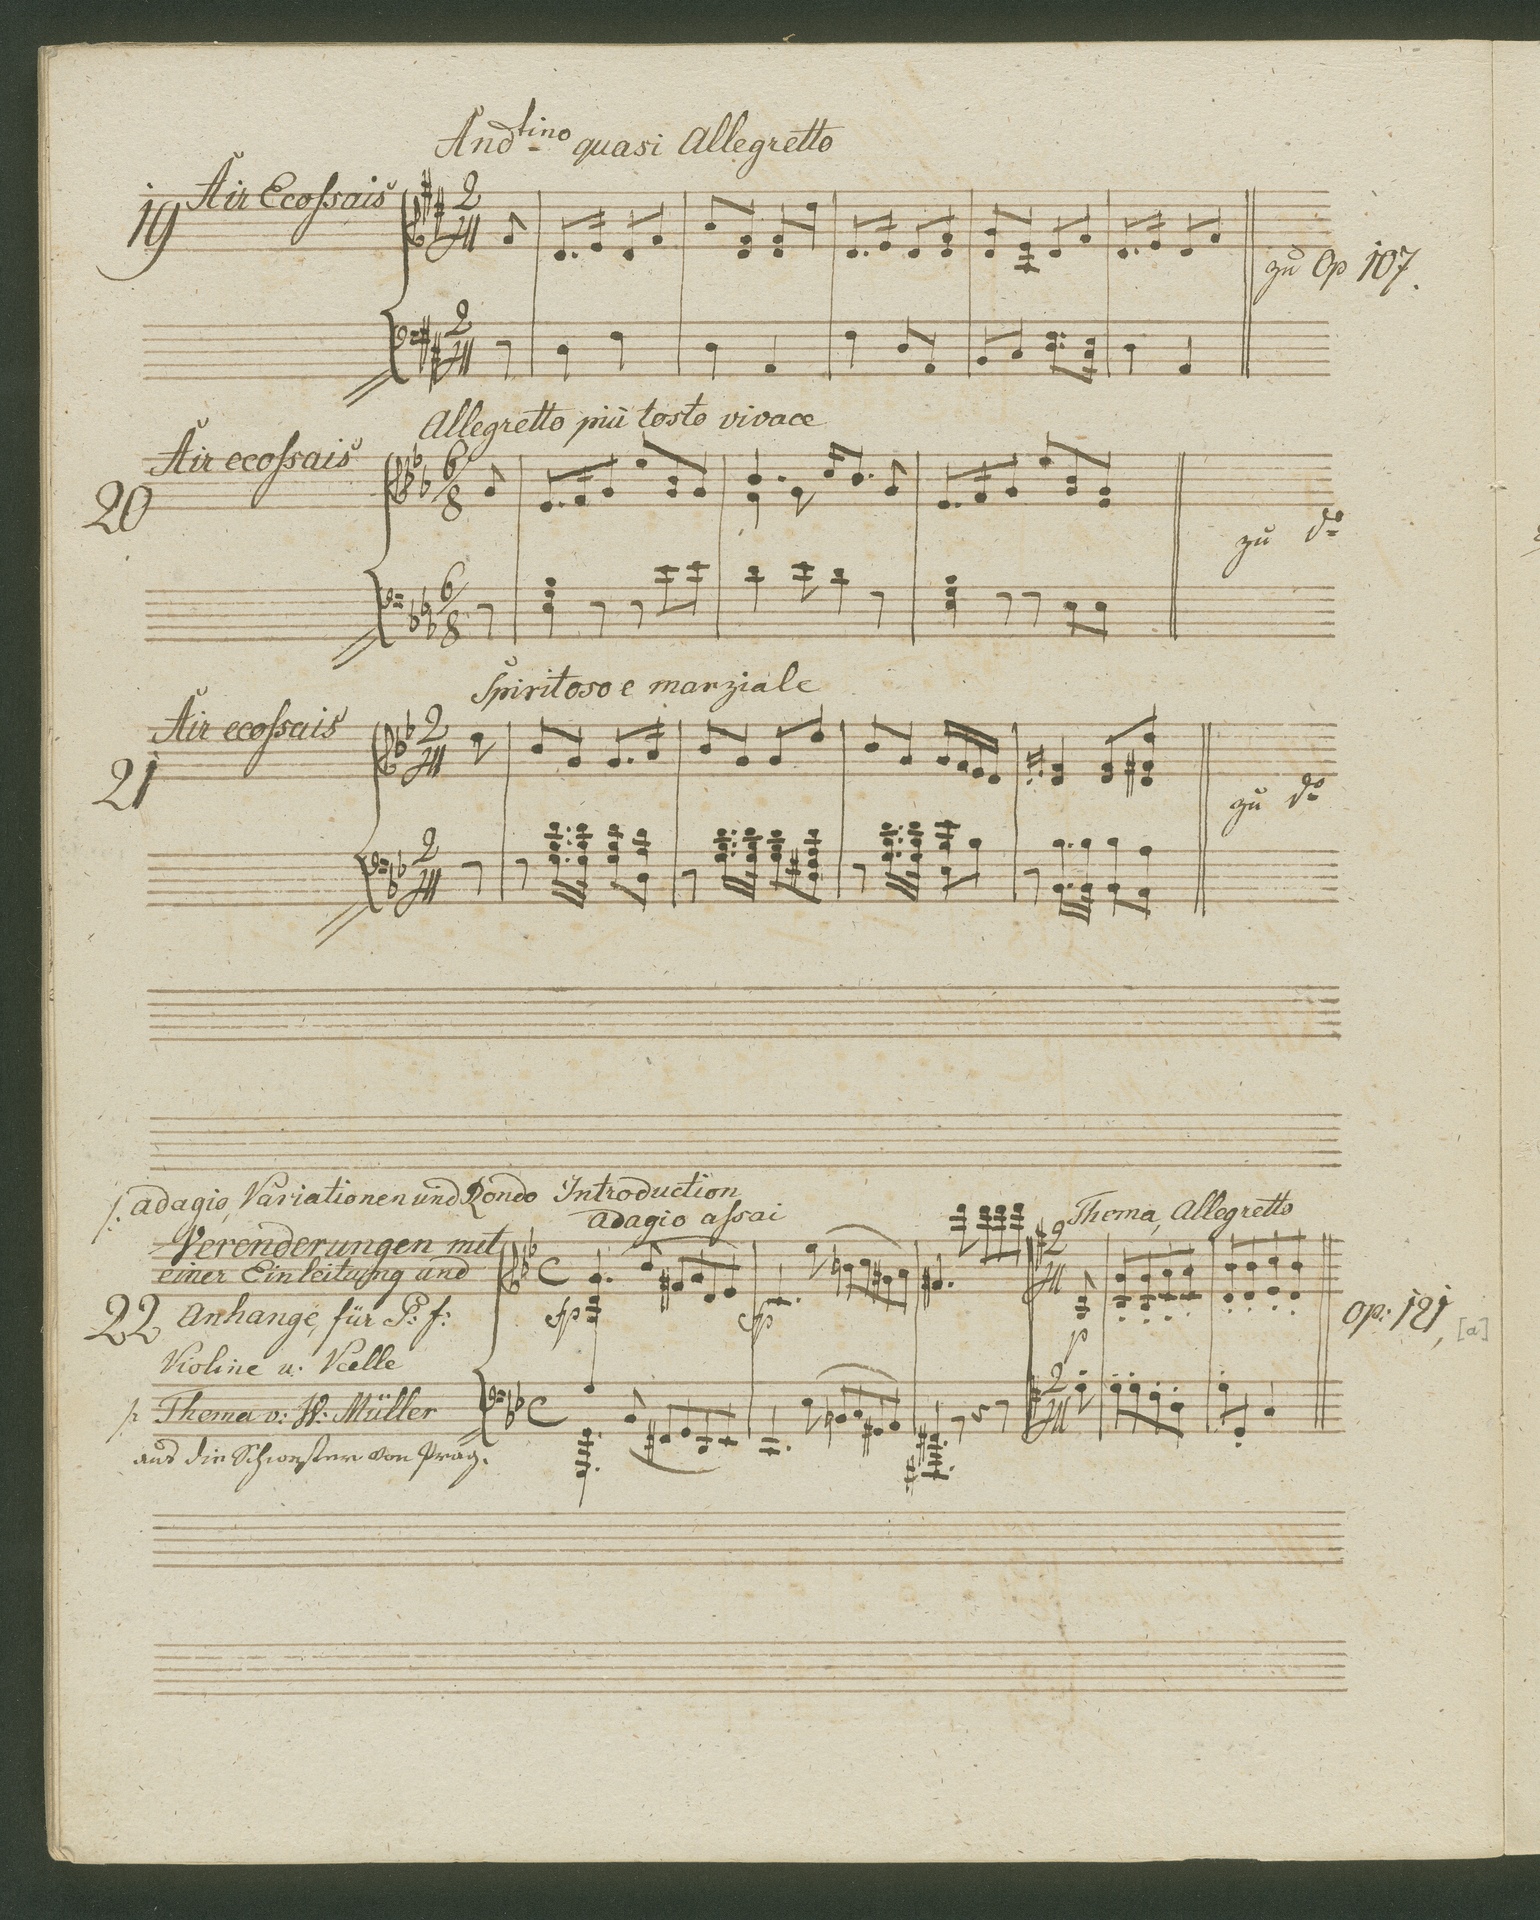 And.tino quasi Allegretto
19 Air Ecoſsais
zu Op 107.
Allegretto più tosto vivace
Air ecoſsais
20
zu do
Spiritoso e marziale
Air ecoſsais
21
zu do
/: adagio, Variationen und Rondo Introduction
adagio aſsai
Thema, Allegretto
Verenderungen mit
einer Einleitung und
22 Anhange, für P: f:
fp fp p
Op: 121, [a]
Violine u: Vcelle
Thema v: W: Müller
aus die Schwestern von Prag.